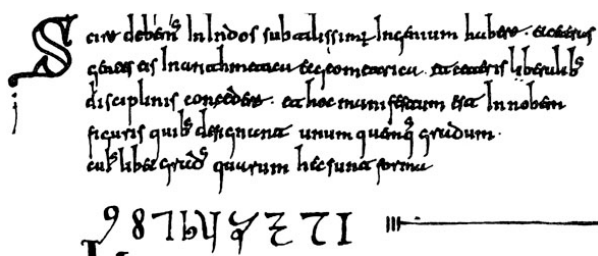 Scire debemꝰ In Indos subtilissimū Ingenium habere. et ceteras
gentes eis In arithmetica et geometrica. et ceteris liberalibꝰ
disciplinis concedere. et hoc manifestum est In nobem
figuris quibꝰ designant unum quemqꝫ gradum.
cuiꝰlibet gradꝰ quarum hec sunt forma
9 8 7 6 5 4 3 2 1